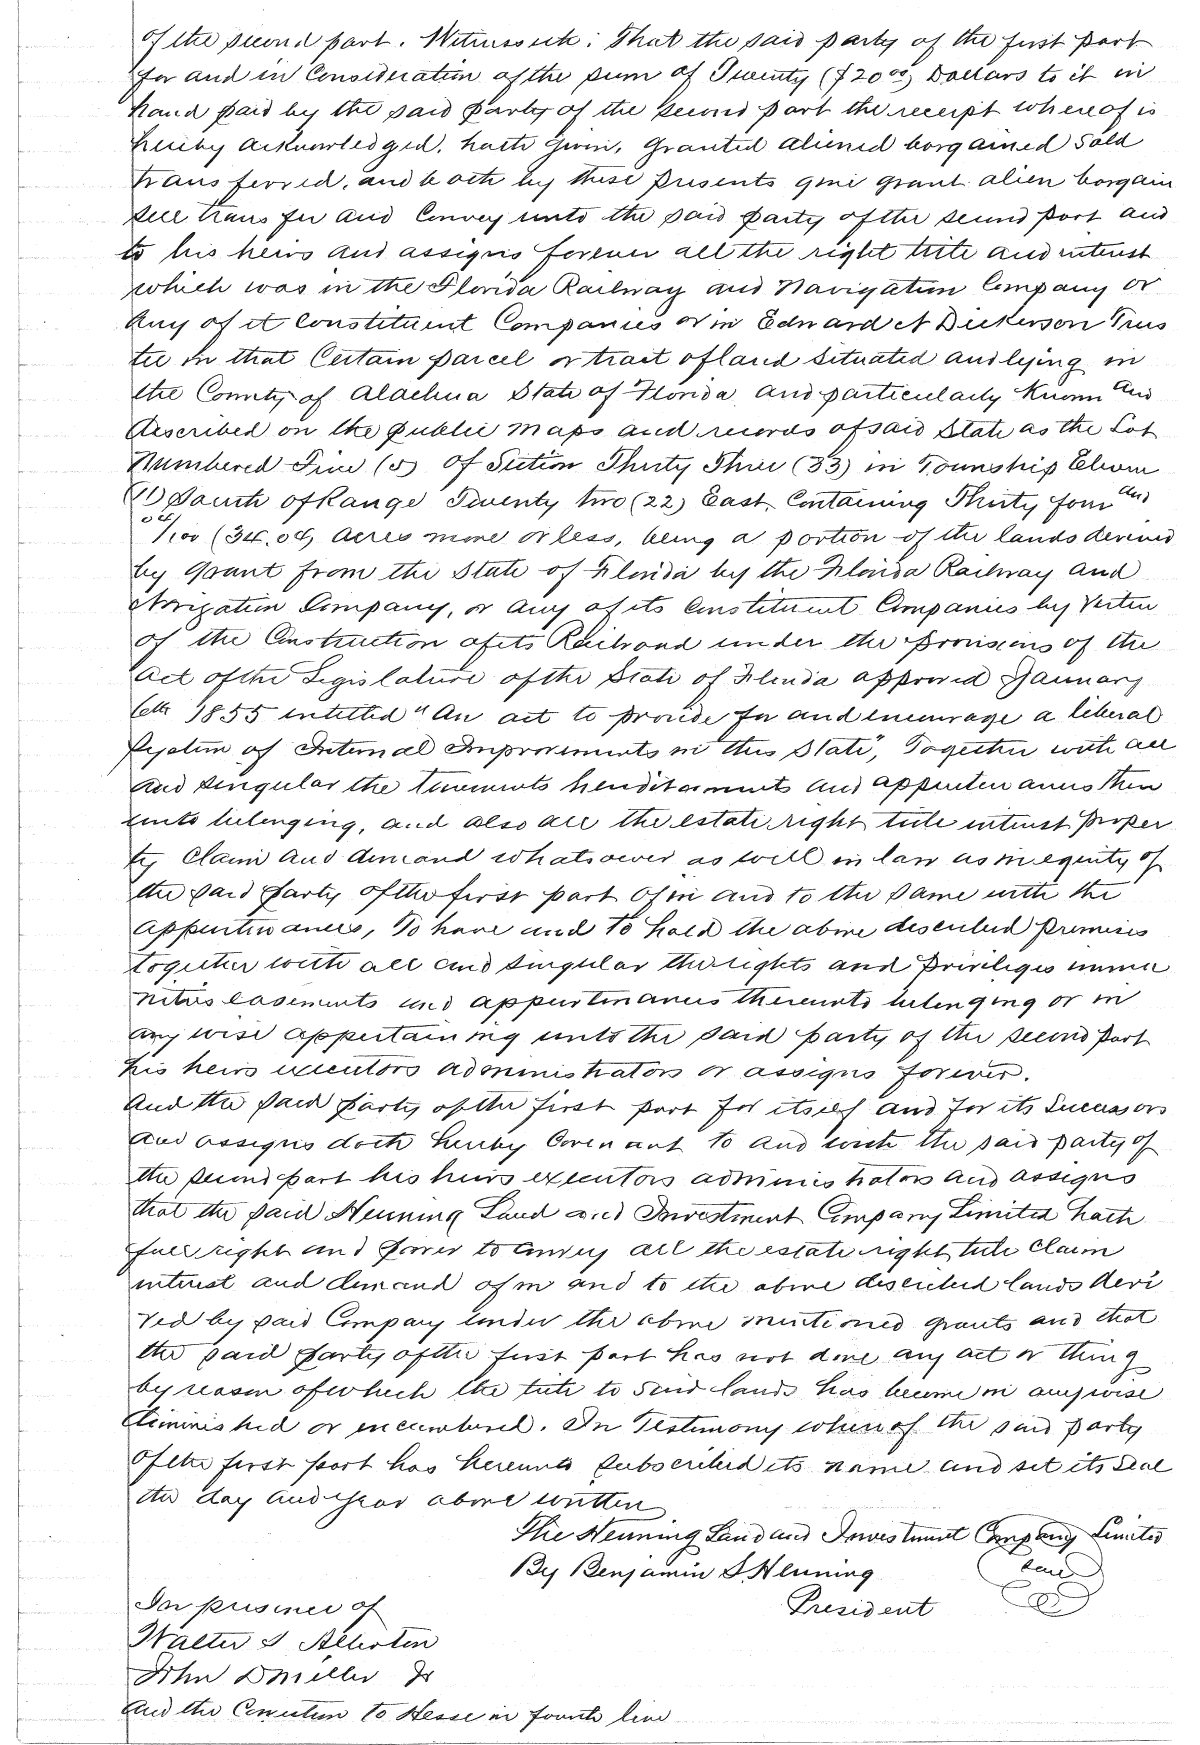 of the second part. Witnesseth: That the said party of the first part
for and in Consideration of the sum of Twenty ($20 00) Dollars to it in
hand paid by the said party of the second part the receipt whereof is
hereby acknowledged, hath given, granted aliened bargained Sold
transferred, and doth by these presents give grant alien bargain
sell transfer and Convey unto the said party of the second part and
to his heirs and assigns forever all the right title and interest
which was in the Florida Railway and Navigation Company or
any of it Constituent Companies or in Edward N Dickerson Trus
tee in that Certain parcel or tract of land situated and lying in
the County of Alachua State of Florida and particularly Known and
described on the public maps and records of said State as the Lot
Numbered Five (5) of Section Thirty Three (33) in Township Eleven
(11) South of Range Twenty two (22) East, Containing Thirty four and
04/100 (34.04) acres more or less, being a portion of the lands derived
by grant from the State of Florida by the Florida Railway and
Navigation Company, or any of its Constituent Companies by Vertue
of the Construction of its Railroad under the provisions of the
Act of the Legislature of the State of Florida approved January
6th 1855 entitled "An act to provide for and encourage a liberal
System of Internal Improvements in this State", Together with all
and singular the tenements hereditaments and appurtenances there
unto belonging, and also all the estate right title interest proper
ty Claim and demand whatsoever as well in law as in equity of
the said party of the first part of in and to the same with the
appurtenances, To have and to hold the above described premises
together with all and singular the rights and priviliges immu
nities easements and appurtenances thereunto belonging or in
any wise appertaining unto the said party of the second part
his heirs executors administrators or assigns forever.
And the said party of the first part for itself and for its Successors
and assigns doth hereby Covenant to and with the said party of
the second part his heirs executors administrators and assigns
that the said Henning Land and Investment Company Limited hath
full right and power to convey all the estate right title claim
interest and demand of in and to the above described lands deri
ved by said Company under the above mentioned grants and that
the said party of the first part has not done any act or thing
by reason of which the title to said lands has become in anywise
diminished or encumbered. In Testimony whereof the said party
of the first part has hereunto subscribed its name and set its seal
the day and year above written
The Henning Land and Investment Company Limited
By Benjamin S. Henning
Seal
President
In presence of
Walter S Allerton
John D Miller Jr
And the Correction to Hesse in fourth line